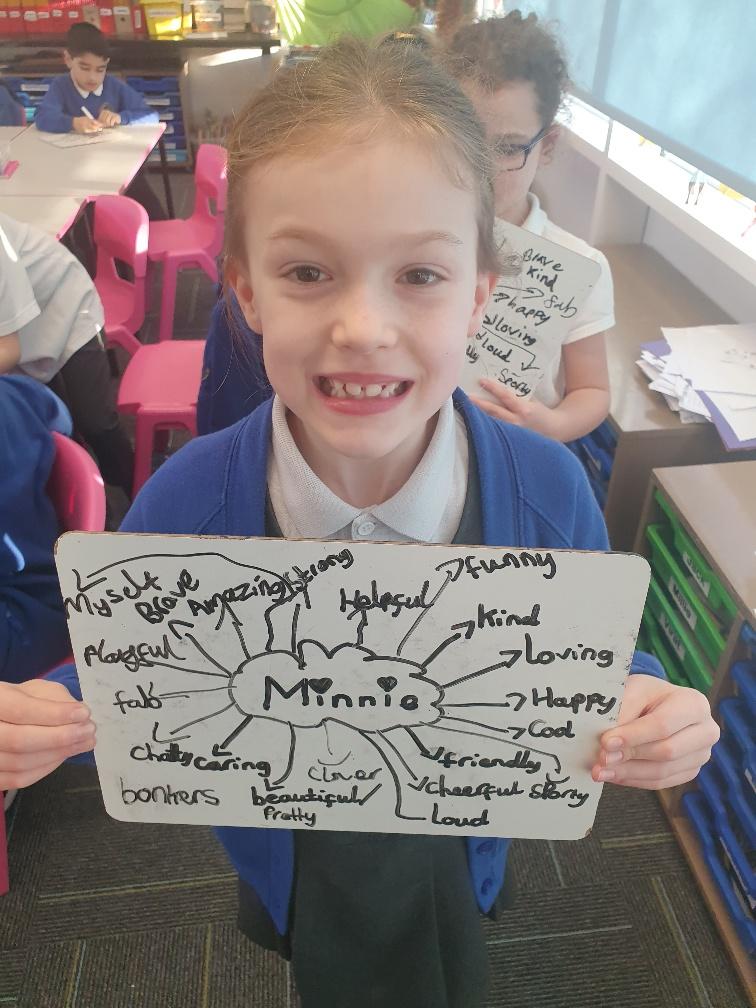 Brave
Kind
fab
happy
loving
loud
Sporty
Myself
Brave
Amazing
Strong
Helpful
funny
Kind
Loving
Playful
fab
Minnie
Happy
Cool
Chatty
caring
Clever
friendly
cheerful
Storty
bonkers
beautiful/
Pretty
Loud